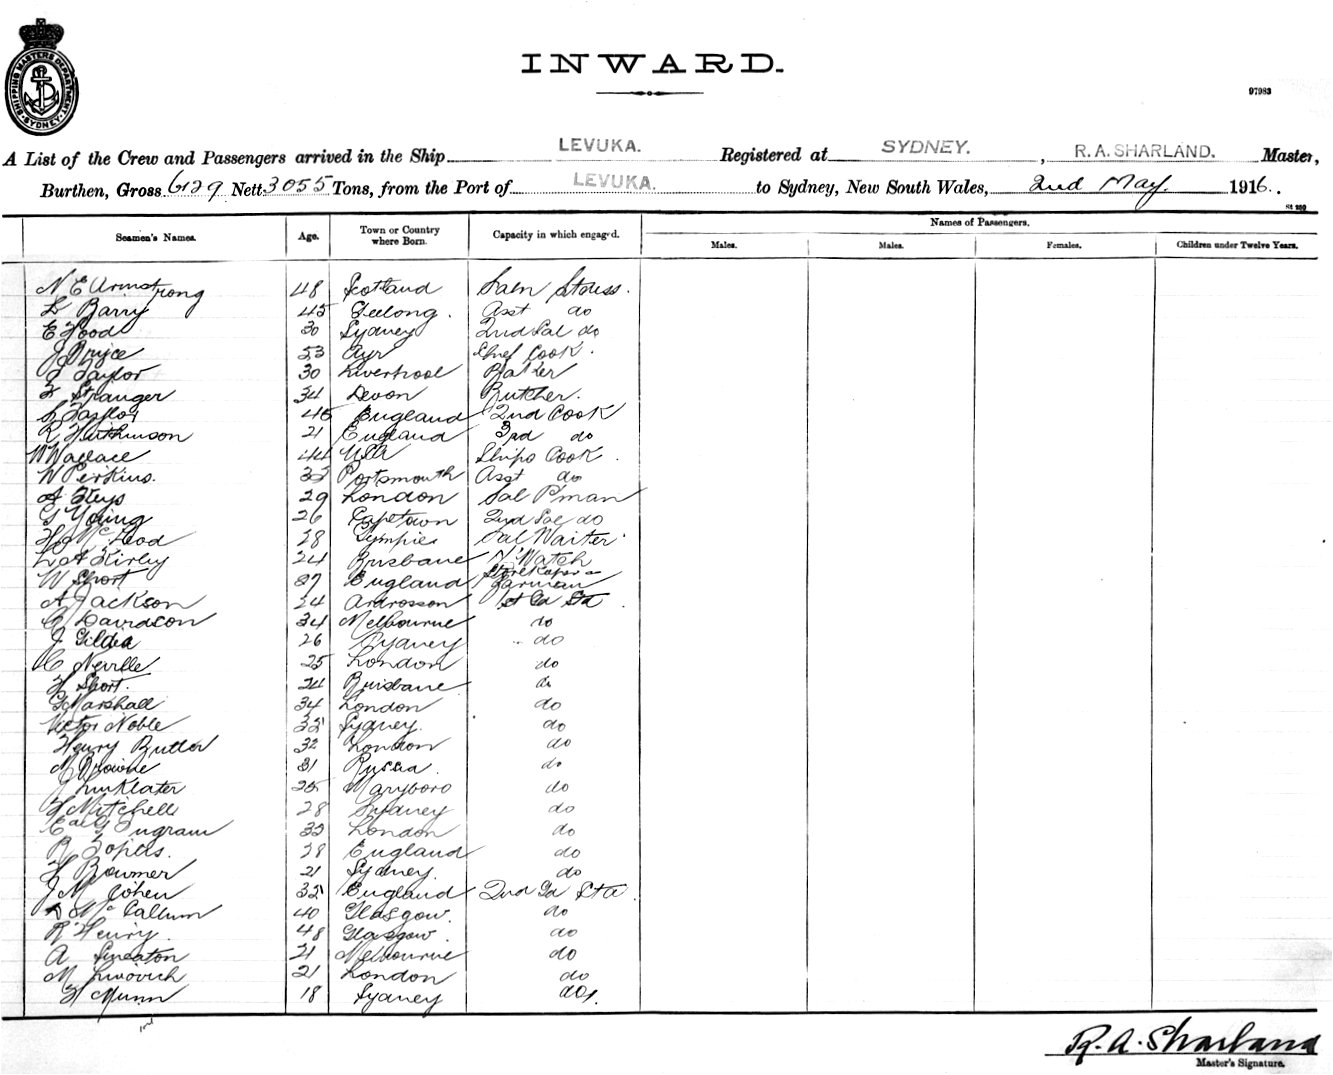 SHIPPING MASTERS DEPARTMENT
SYDNEY
INWARD.
97983
A List of the Crew and Passengers arrived in the Ship LEVUKA. Registered at SYDNEY. , R. A. SHARLAND. Master,
Burthen, Gross 6129 Nett 3055 Tons, from the Port of LEVUKA. to Sydney, New South Wales, 2nd May. 1916.
Names of Passengers.
Seamen's Names. Age. Town or Country where Born. Capacity in which engaged. Males. Males. Females. Children under Twelve Years.
N E Armstrong 48 Scotland Saln Stdss.
L Barry 45 Geelong. Asst do
E Hood 30 Sydney 2nd Sal do
J Bryce 53 Ayr Chef Cook.
J Taylor 30 Liverpool Baker
F Stranger 34 Devon Butcher.
L Taylor 45 England 2nd Cook
R Hutchinson 21 England 3rd do
W Wallace 44 USA Ships Cook.
W Perkins. 33 Portsmouth Asst do
A Keys 29 London Sal P'man
G Young 26 Capetown 2nd Sal do
H J McLeod 28 Gympie Sal Waiter
L A Kirby 24 Brisbane N' Watch
W Short 37 England Storekeeper
A Jackson 24 Ardrossan 1st Gd Std.
C Davidson 34 Melbourne do
J Gildea 26 Sydney do
C Neville 25 London do
H Short. 24 Brisbane do
G Marshall 34 London do
Victor Noble 32 Sydney. do
Henry Butler 32 London do
M Browne 31 Russia. do
J Linklater 25 Maryboro do
H Mitchell 28 Sydney do
Ingram 32 London do
R 28 England do
H Bowmer 21 Sydney. do
J M Cohen 32 England 2nd Gd Std.
D McCallum 40 Glasgow. do
R Henry. 48 Glasgow. do
A Smeaton 21 Melbourne do
M 21 London do
H Munn 18 Sydney do.
R. A. Sharland
Master's Signature.